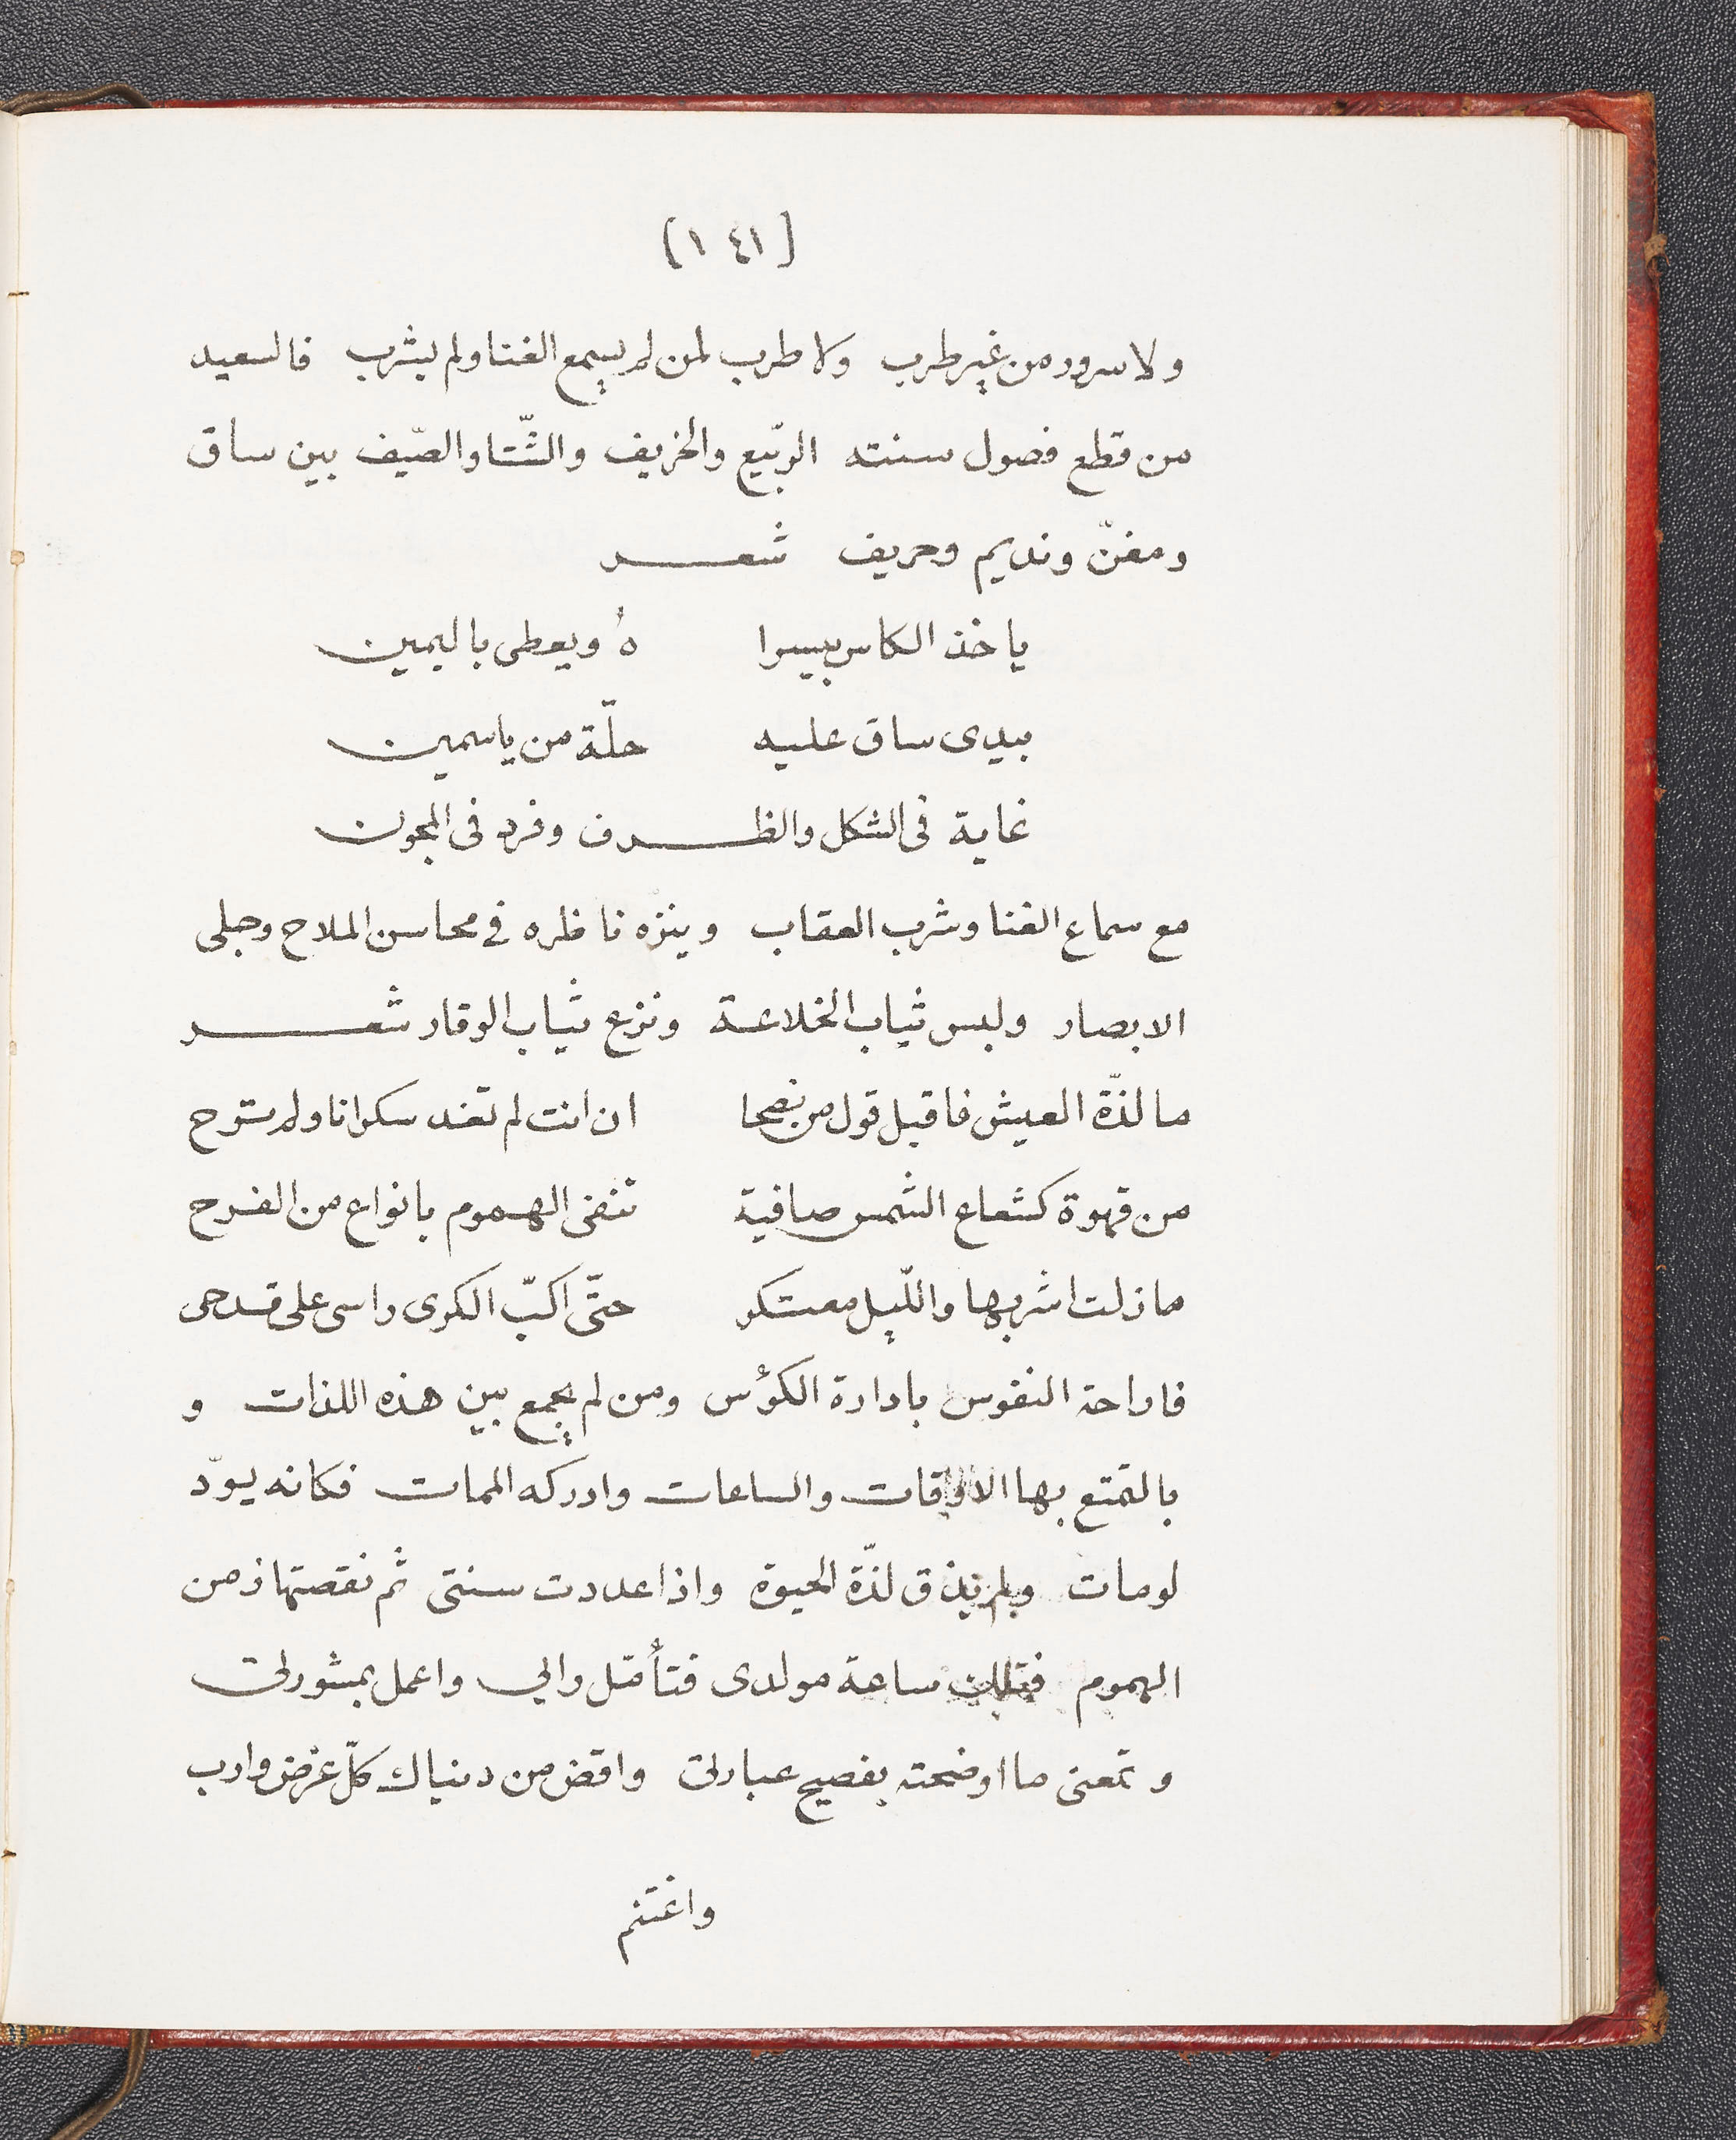 [١٤١]
ولا سرور من غير طرب ولا طرب لمن لم يسمع الغنا ولم يشرب فالسعيد
من قطع فصول سنته الرّبيع والخريف والشّتا والصّيف بين ساق
ومغنّ ونديم وحريف شعـــر
ياخذ الكاس بيسرا هُ ويعطى باليمين
بيدى ساق عليه حلّة من ياسمين
غاية فى الشكل والظـــرف وفرد فى المجون
مع سماع الغنا وشرب العقاب وينزّه ناظره في محاسن الملاح وجلى
الابصار ولبس ثياب الخلاعة ونزع ثياب الوقار شعـــر
ما لذّة العيش فاقبل قول من نصحا ان انت لم تغد سكرانا ولم تترح
من قهوة كشعاع الشمس صافية تنفى الهموم بانواع من الفرح
ما زلت اشربها واللّيل معتكر حتّى اكبّ الكرى راسى على قدحى
فاراحة النفوس بادارة الكؤس ومن لم يجمع بين هذه اللذات و
بالتمتع بها الاوقات والساعات وادركه الممات فكانه يودّ
لومات ولم يذق لذّة الحيوة واذا عددت سنتى ثم نقصتها زمن
الهموم فتلك ساعة مولدى فتأمّل رايي واعمل بمشورتى
وتمعنى ما اوضحته بفصيح عبارتى واقض من دنياك كلّ غرض وارب
واغتنم